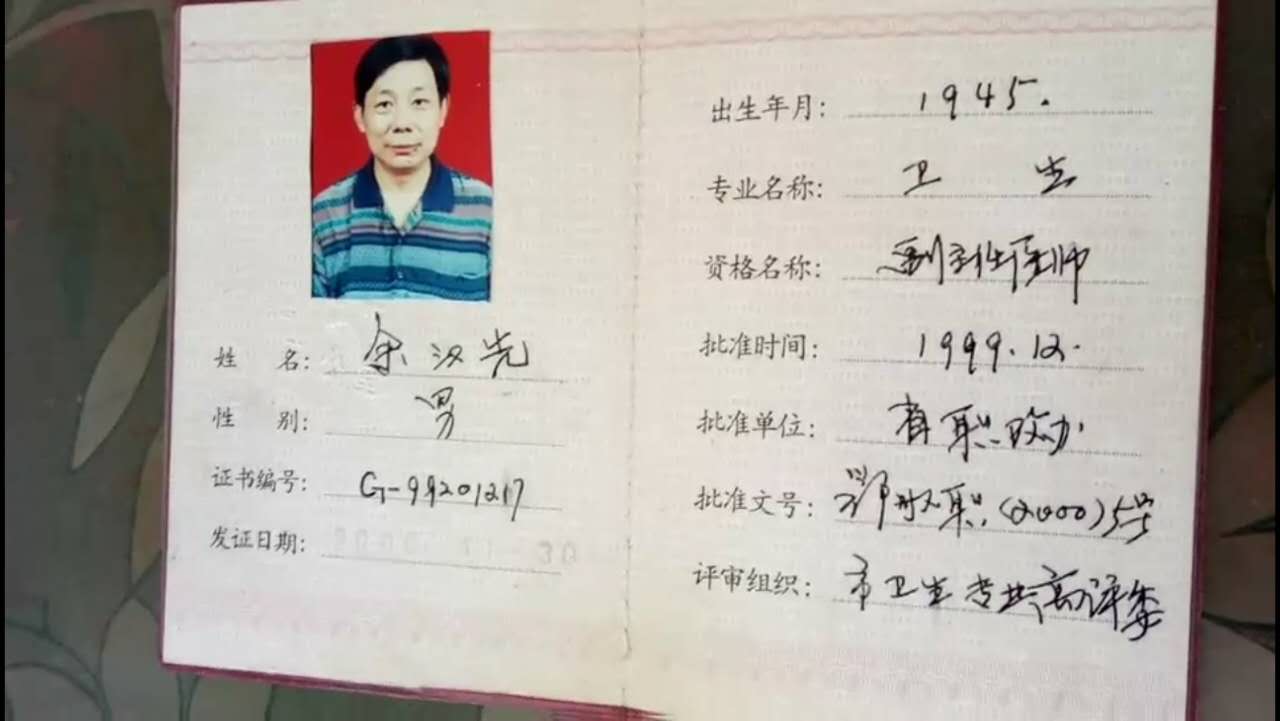 姓 名: 余汉先
性 别: 男
证书编号: G-99201217
发证日期: 30
出生年月: 1945.
专业名称: 卫 生
资格名称: 副主任医师
批准时间: 1999.12.
批准单位: 省职改办
批准文号: 鄂职改(2000)5号
评审组织: 市卫生专业高评委